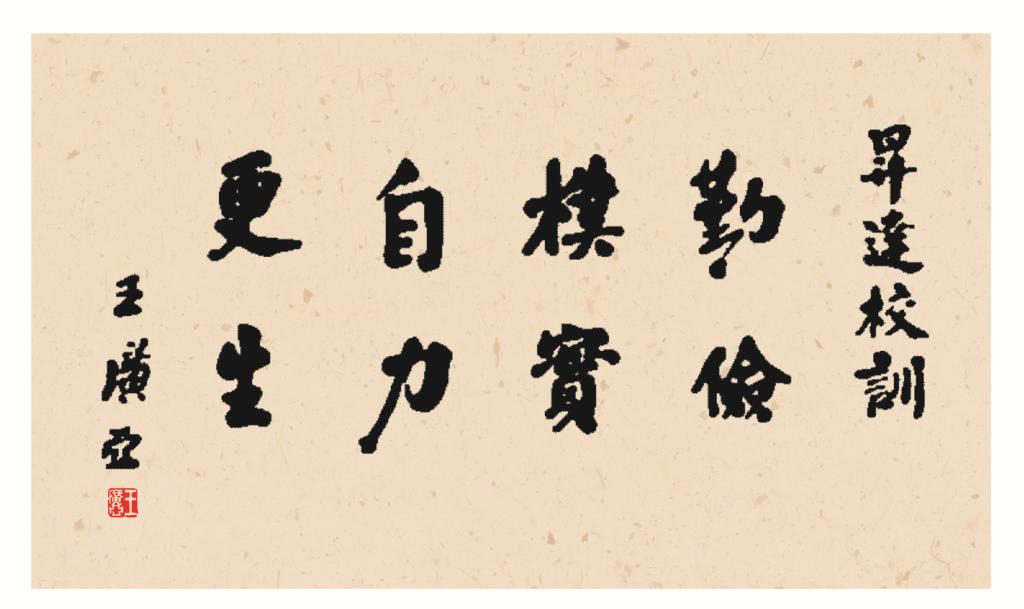 昇達校訓
勤儉
樸實
自力
更生
王廣亞
王廣亞